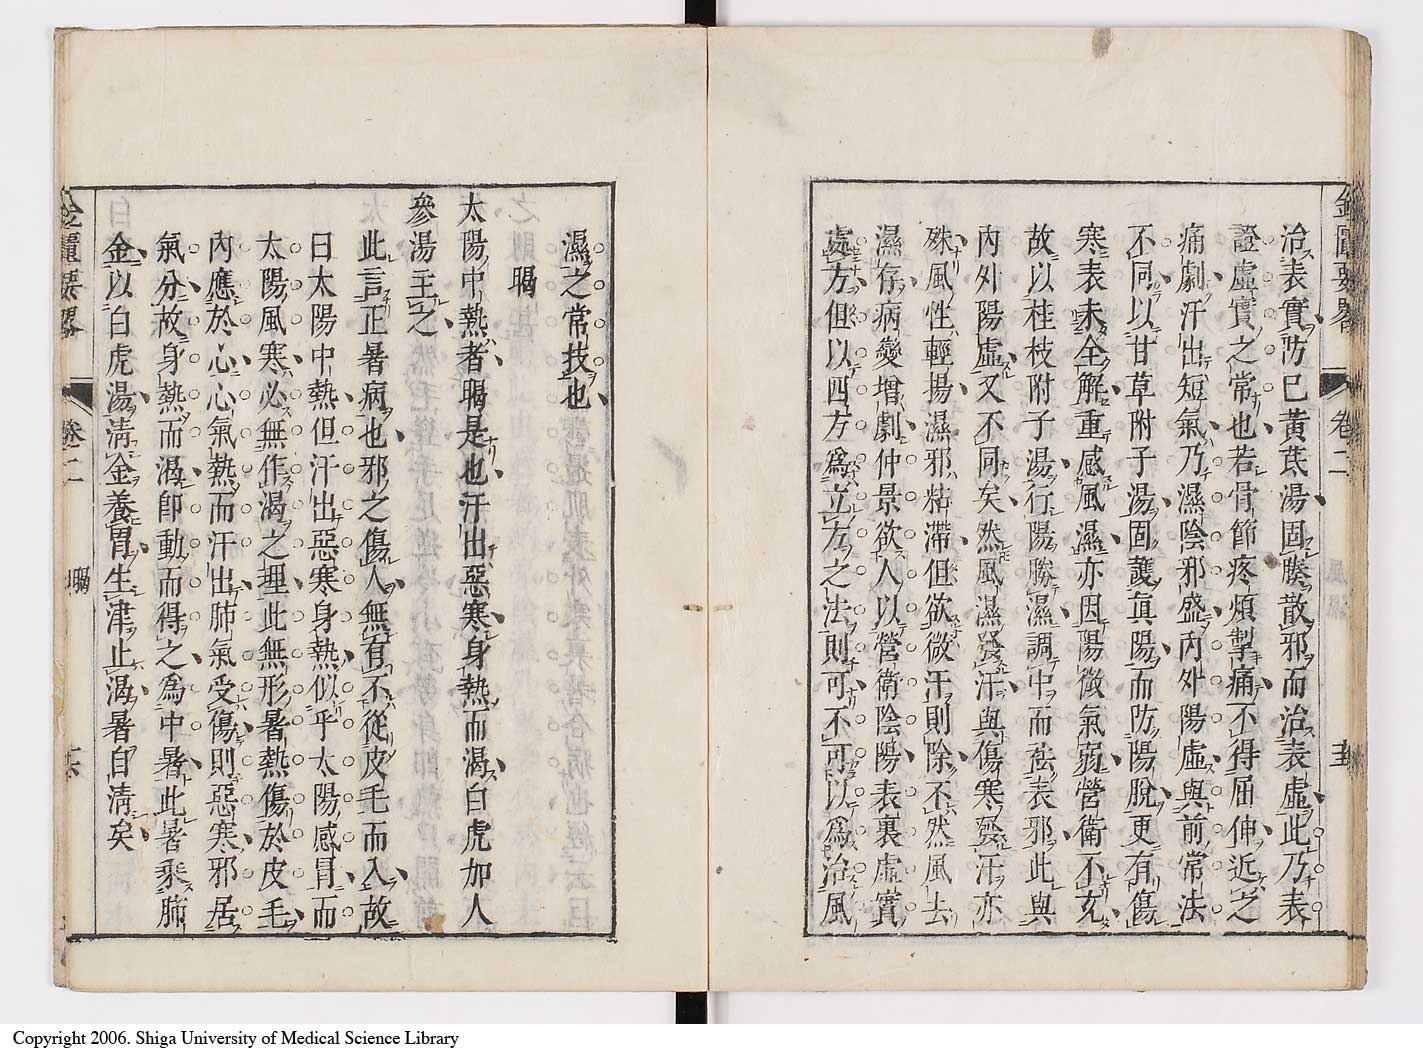 金匱要畧 卷二 濕 十五
治表實防已黃茋湯固腠散邪而治表虛此乃表
證虛實之常也若骨節疼煩掣痛不得屈伸近之
痛劇汗出短氣乃濕陰邪盛內外陽虛與前常法
不同以甘草附子湯固護眞陽而防陽脫更有傷
寒表未全解重感風濕亦因陽微氣弱營衛不充
故以桂枝附子湯行陽勝濕調中而袪表邪此與
內外陽虛又不同矣然風濕發汗與傷寒發汗亦
殊風性輕揚濕邪粘滯但欲微汗則除不然風去
濕存病變增劇仲景欲人以營衛陰陽表裏虛實
處方但以四方爲立方之法則可不可以爲治風
濕之常技也
暍
太陽中熱者暍是也汗出惡寒身熱而渴白虎加人
參湯主之
此言正暑病也邪之傷人無有不從皮毛而入故
曰太陽中熱但汗出惡寒身熱似乎太陽感冒而
太陽風寒必無作渴之理此無形暑熱傷於皮毛
內應於心心氣熱而汗出肺氣受傷則惡寒邪居
氣分故身熱而渴卽動而得之爲中暑此暑乘肺
金以白虎湯清金養胃生津止渴暑自清矣
金匱要畧 卷二 暍 十六
Copyright 2006. Shiga University of Medical Science Library